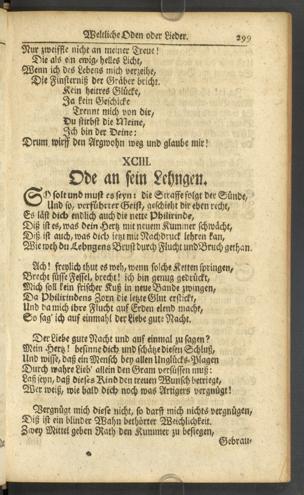 Weltliche Oden oder Lieder. 299
Nur zweiffle nicht an meiner Treue!
Die als ein ewig-helles Licht,
Wenn ich des Lebens mich verzeihe,
Die Finsterniß der Gräber bricht.
Kein heitres Glücke,
Ja kein Geschicke
Trennt mich von dir,
Du stirbst die Meine,
Ich bin der Deine:
Drum wirff den Argwohn weg und glaube mir!
XCIII.
Ode an sein Lehngen.
SO solt und must es seyn: die Straffe folgt der Sünde,
Und so, verführter Geist, geschieht dir eben recht,
Es läst dich endlich auch die nette Philirinde,
Diß ist es, was dein Hertz mit neuem Kummer schwächt,
Diß ist auch, was dich jetzt mit Nachdruck lehren kan,
Wie weh du Lehngens Brust durch Flucht und Bruch gethan.
Ach! freylich thut es weh, wenn solche Ketten springen,
Brecht süsse Fessel, brecht! ich bin genug gedrückt,
Mich soll kein frischer Kuß in neue Bande zwingen,
Da Philirindens Zorn die letzte Glut erstickt,
Und da mich ihre Flucht auf Erden elend macht,
So sag' ich auf einmahl der Liebe gute Nacht.
Der Liebe gute Nacht und auf einmal zu sagen?
Mein Hertz! besinne dich und schätze diesen Schluß,
Und wisse, daß ein Mensch bey allen Unglücks-Plagen
Durch wahre Lieb' allein den Gram versüssen muß:
Laß seyn, daß dieses Kind den treuen Wunsch betriegt,
Wer weiß, wie bald dich noch was Artigers vergnügt!
Vergnügt mich diese nicht, so darf mich nichts vergnügen,
Diß ist ein blinder Wahn bethörter Weichlichkeit.
Zwey Mittel geben Rath den Kummer zu besiegen,
Gebrau-